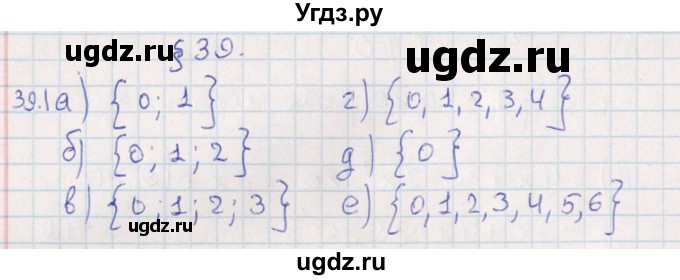 Угдз.ру
ugdz.ru ugdz.ru
§ 39.
39.1 а) { 0; 1 } г) {0, 1, 2, 3, 4}
б) {0; 1; 2} д) {0}
в) {0; 1; 2; 3} е) {0, 1, 2, 3, 4, 5, 6}
ugdz.ru ugdz.ru